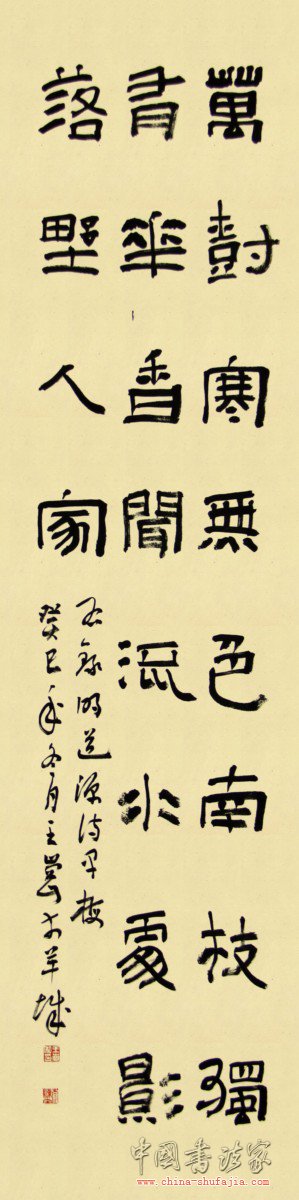 萬樹寒無色南枝獨
有華香聞流水處影
落野人家
右錄明道源詩早梅
癸巳年冬月王嵩於羊城
中國書法家
www.china-shufajia.com